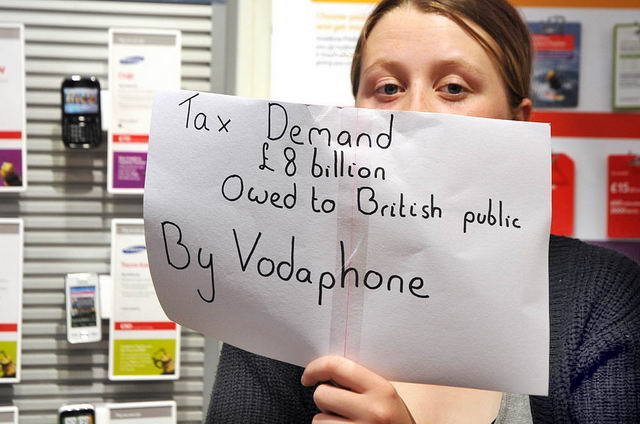 Tax Demand
£8 billion
Owed to British public
By Vodaphone
£15